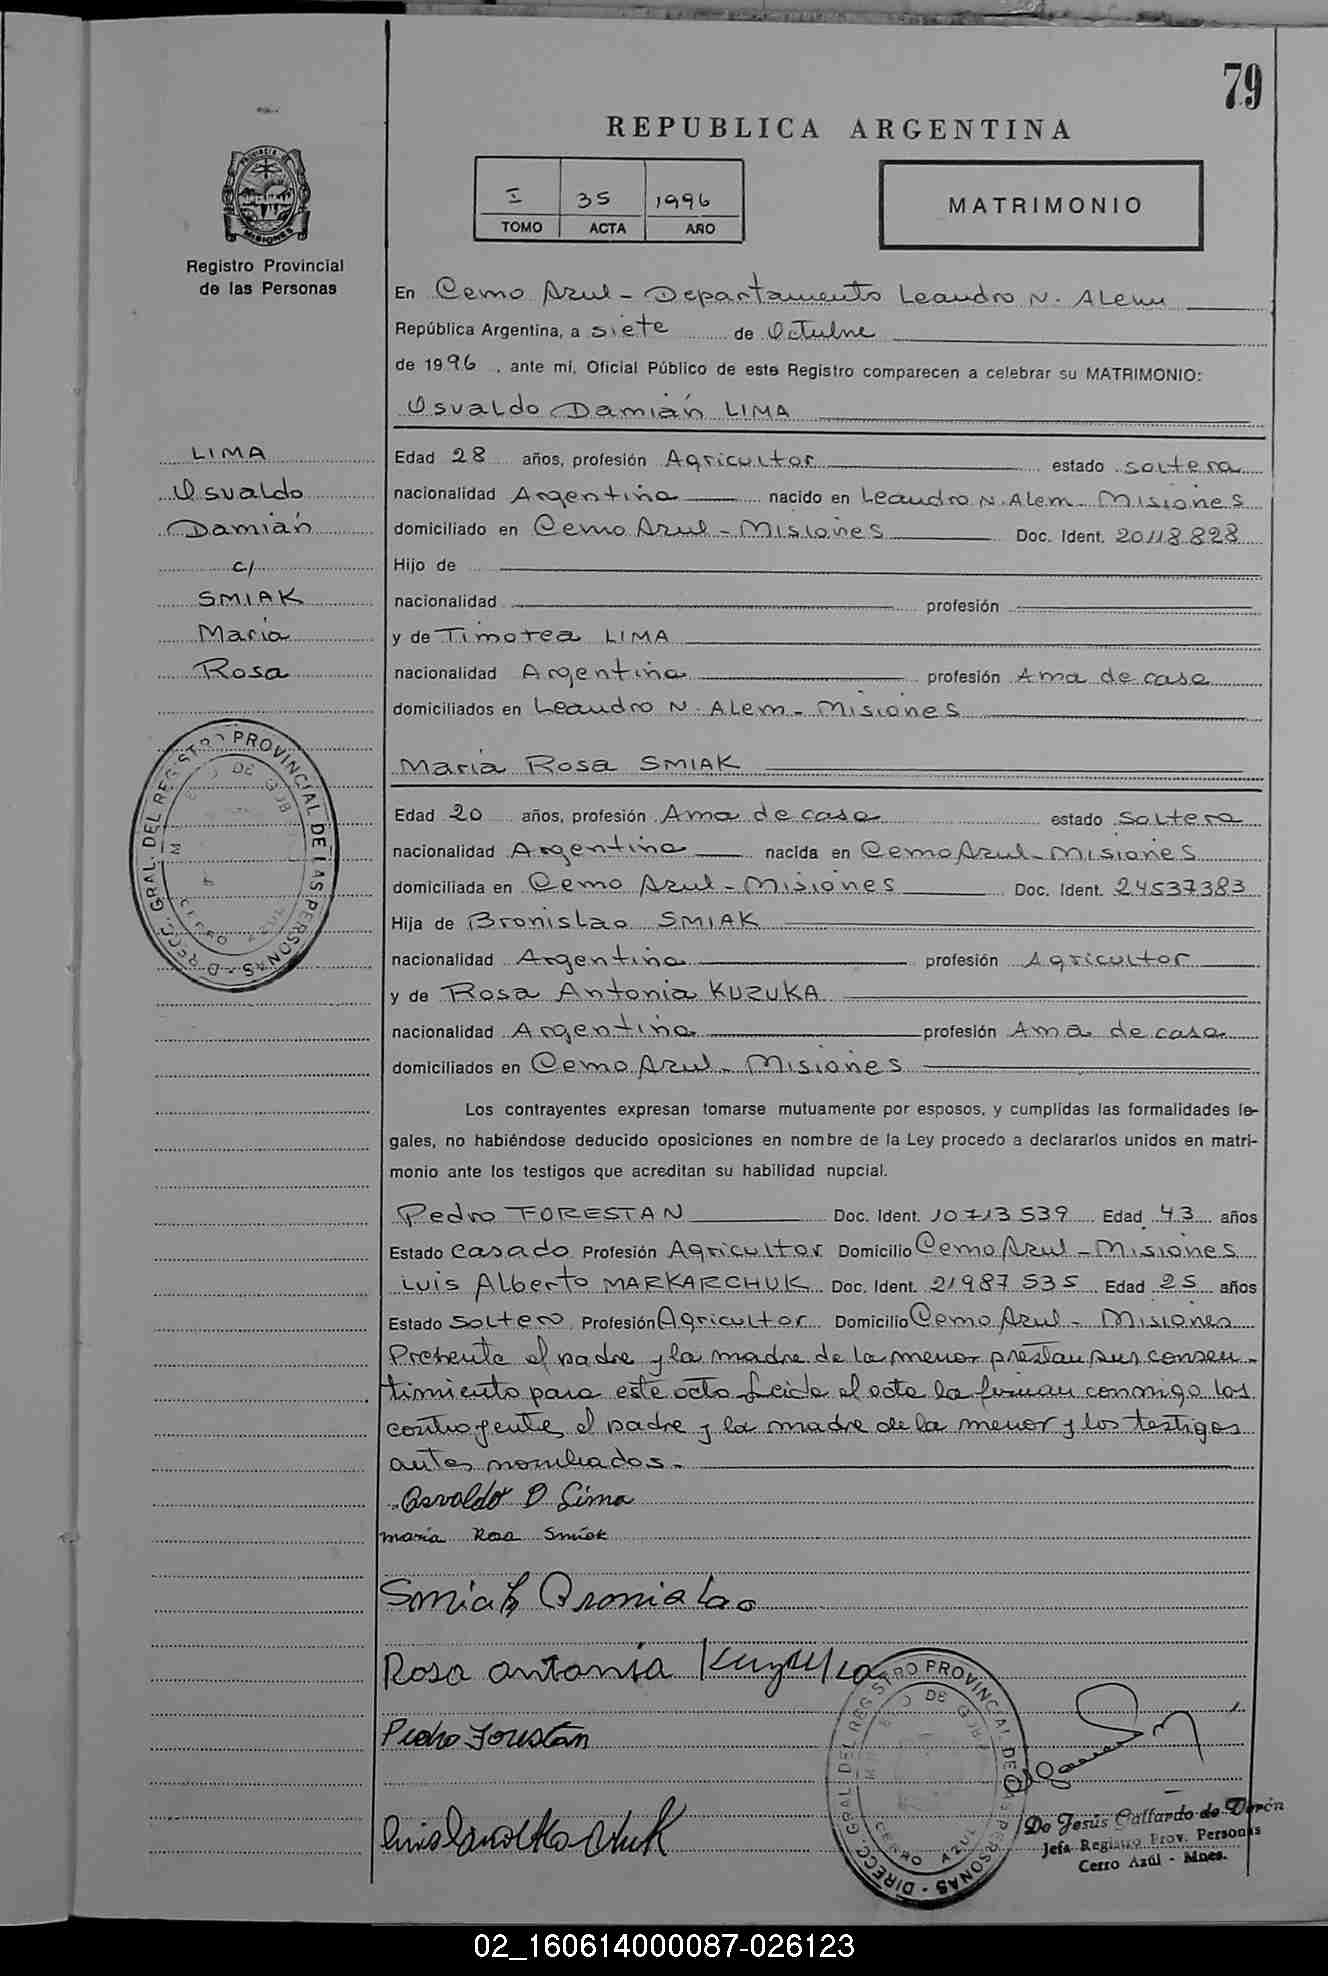 79
REPUBLICA ARGENTINA
I 35 1996
TOMO ACTA AÑO
MATRIMONIO
PROVINCIA DE MISIONES
Registro Provincial
de las Personas
En Cerro Azul - Departamento Leandro N. Alem
República Argentina, a siete de Octubre
de 1996, ante mí, Oficial Público de este Registro comparecen a celebrar su MATRIMONIO:
Osvaldo Damián LIMA
LIMA
Osvaldo
Damián
c/
SMIAK
María
Rosa
Edad 28 años, profesión Agricultor estado soltero
nacionalidad Argentina nacido en Leandro N. Alem - Misiones
domiciliado en Cerro Azul - Misiones Doc. Ident. 20118828
Hijo de
nacionalidad profesión
y de Timotea LIMA
nacionalidad Argentina profesión Ama de casa
domiciliados en Leandro N. Alem - Misiones
María Rosa SMIAK
Edad 20 años, profesión Ama de casa estado Soltera
nacionalidad Argentina nacida en Cerro Azul - Misiones
domiciliada en Cerro Azul - Misiones Doc. Ident. 24537383
Hija de Bronislao SMIAK
nacionalidad Argentina profesión Agricultor
y de Rosa Antonia KUZUKA
nacionalidad Argentina profesión Ama de casa
domiciliados en Cerro Azul - Misiones
Los contrayentes expresan tomarse mutuamente por esposos, y cumplidas las formalidades le-
gales, no habiéndose deducido oposiciones en nombre de la Ley procedo a declararlos unidos en matri-
monio ante los testigos que acreditan su habilidad nupcial.
Pedro FORESTAN Doc. Ident. 10713539 Edad 43 años
Estado casado Profesión Agricultor Domicilio Cerro Azul - Misiones
Luis Alberto MARKARCHUK Doc. Ident. 21987535 Edad 25 años
Estado soltero Profesión Agricultor Domicilio Cerro Azul - Misiones
Presente el padre y la madre de la menor prestan sus consen-
timiento para este acto. Leida el acta la firman conmigo los
contrayente, el padre y la madre de la menor y los testigos
antes nombrados.-
Osvaldo D Lima
maria Rosa Smiak
Smiak Bronislao
Rosa antonia Kuzuka
Pedro Forestan
DIRECC. GRAL. DEL REGISTRO PROVINCIAL DE LAS PERSONAS
CERRO AZUL
DIRECC. GRAL. DEL REGISTRO PROVINCIAL DE LAS PERSONAS
CERRO AZUL
De Jesús Gallardo de Durán
Jefa Registro Prov. Personas
Cerro Azul - Mnes.
02_160614000087-026123